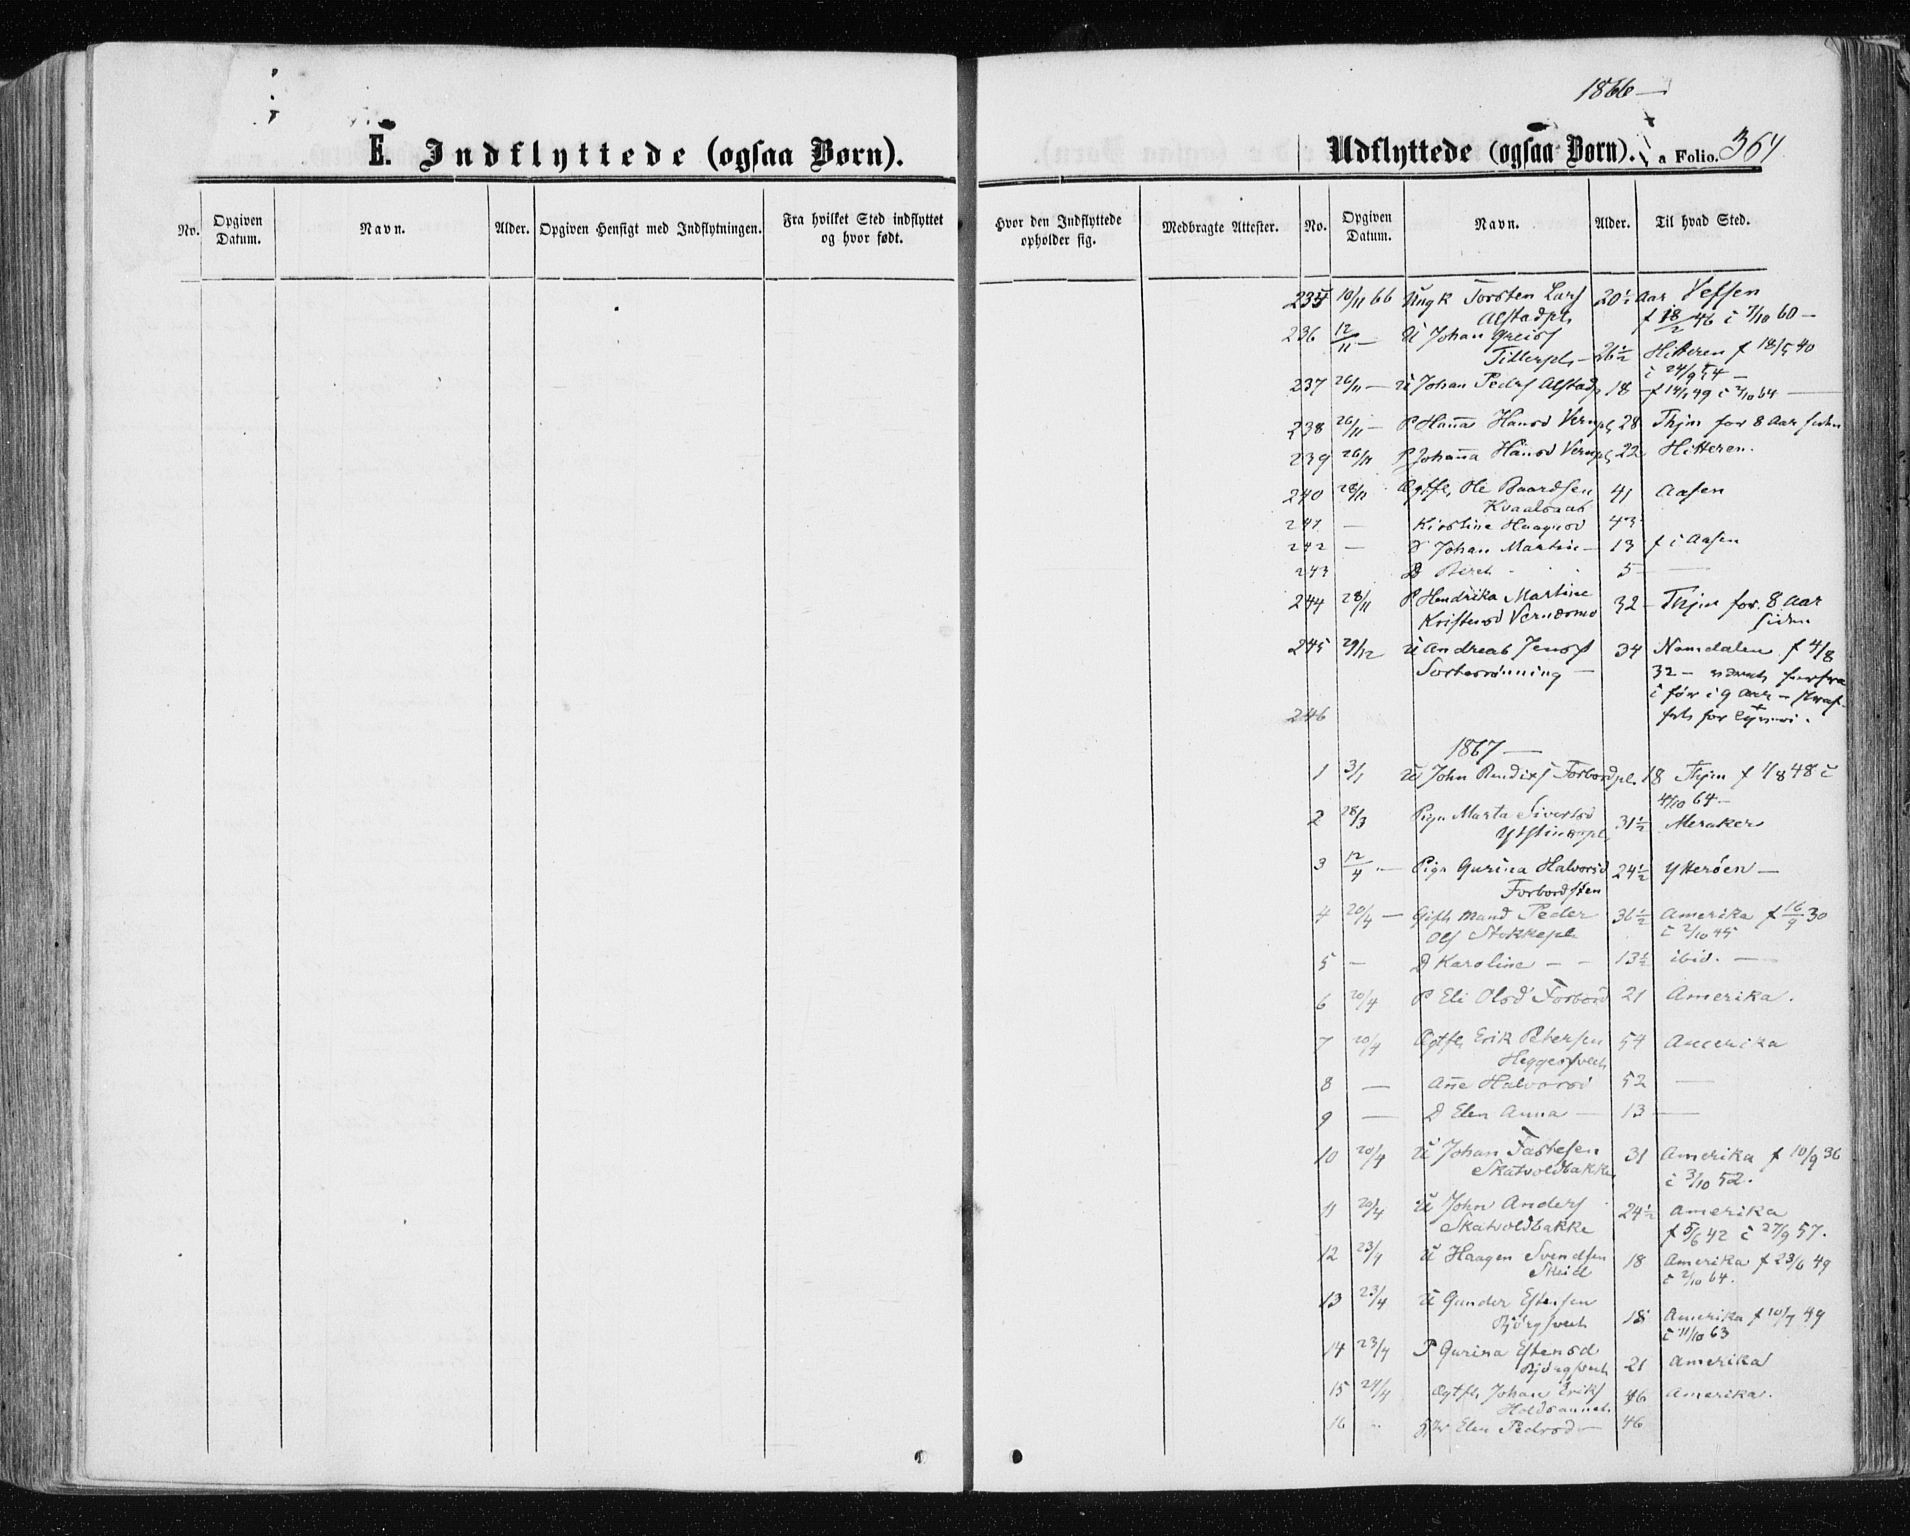 1866 —
E. Indflyttede (ogsaa Børn).
Udflyttede (ogsaa Børn). a Folio. 364
No. Opgiven Datum. Navn. Alder. Opgiven Hensigt med Indflytningen. Fra hvilket Sted indflyttet og hvor født.
Hvor den Indflyttede opholder sig. Medbragte Attester. No. Opgiven Datum. Navn. Alder. Til hvad Sted.
235 10/11 66 Ungk Torsten Lars 20½ Aar Vefsen
Alstadpl f 18/2 46 c 7/10 60 —
236 12/11 — U Johan Greisf
Tillerpl — 26½ Hitteren f 18/5 40
c 24/9 54 —
237 26/11 — U Johan Pedrs Alstadp 18 — f 14/1 49 c 2/10 64 —
238 26/11 — P Hanna Hansd Vernpl 28 Thjm for 8 Aar siden
239 26/11 P Johanna Hansd Vernpl 22 Hitteren.
240 28/11 Ægtfl, Ole Baardsen 41 Aasen
Kvaalsaas
241 — Kirstine Haagnsd 43
242 — D Johan Martin — 13 f i Aasen
243 D Beret 5 —
244 28/11 P Hendrika Martine 32 — Thjm for 8 Aar
Kristensd Vernæsmo siden
245 29/12 U Andreas Jensf 34 Namdalen f 4/8
Sorterønning — 32 —
i før i 9 Aar —
246 for
1867 —
1 3/1 U John Bendixf Forbordpl. 18 Thjm f 1/8 48 c
4/10 64 —
2 28/3 Pige Marta Sivertsd 31½ Meraker
3 12/4 . — Pige Gurina Halvorsd 24½ Ytterøen —
Forbordsten
4 20/4 — Gift Mand Peder 36½ Amerika f 16/9 30
Ols Stokkepl c 2/10 45
5 — D Karoline — — 13½ ibid. —
6 20/4 P Eli Olsd Forbord 21 Amerika.
7 20/4 Ægtfl Erik Petersen 54 Amerika
8 — Ane Halvorsd 52 —
9 — D Elen Anna — 13 —
10 20/4 U Johan Fastesen 31 Amerika f 10/9 36
Skatvoldbakke c 3/10 52.
11 20/4 U John Anders 24½ Amerika
Skatvoldbakke f 5/6 42 c 27/9 57.
12 23/4 U Haagen Svendsen 18 Amerika f 23/6 49
c 2/10 64.
13 23/4 U Gunder Estensen
18 Amerika f 10/7 49
c 11/10 63
14 23/4 P Gurina Estensd
21 Amerika
15 24/4 Ægtfl Johan Eriks 46 Amerika.
16 - Elen Pedersd — 46